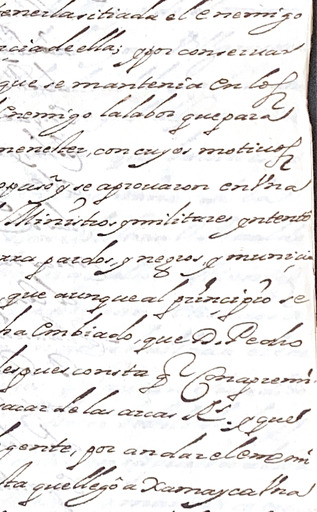 tenerla sitiada el enemigo
ncia de ella; y por conservar
que se mantenia en los
enemigo la labor que para
menester, con cuyos motivos
opuso, y se aprouaron en Vna
Ministros, y militares, yntento
para pardos, y negros, y munici
que aunque al principio se
ha embiado, que D. Pedro
despues consta
sacar de las arcas Rs. y que
gente, por andar el enemi
sta que llegô a Xamayca Vna